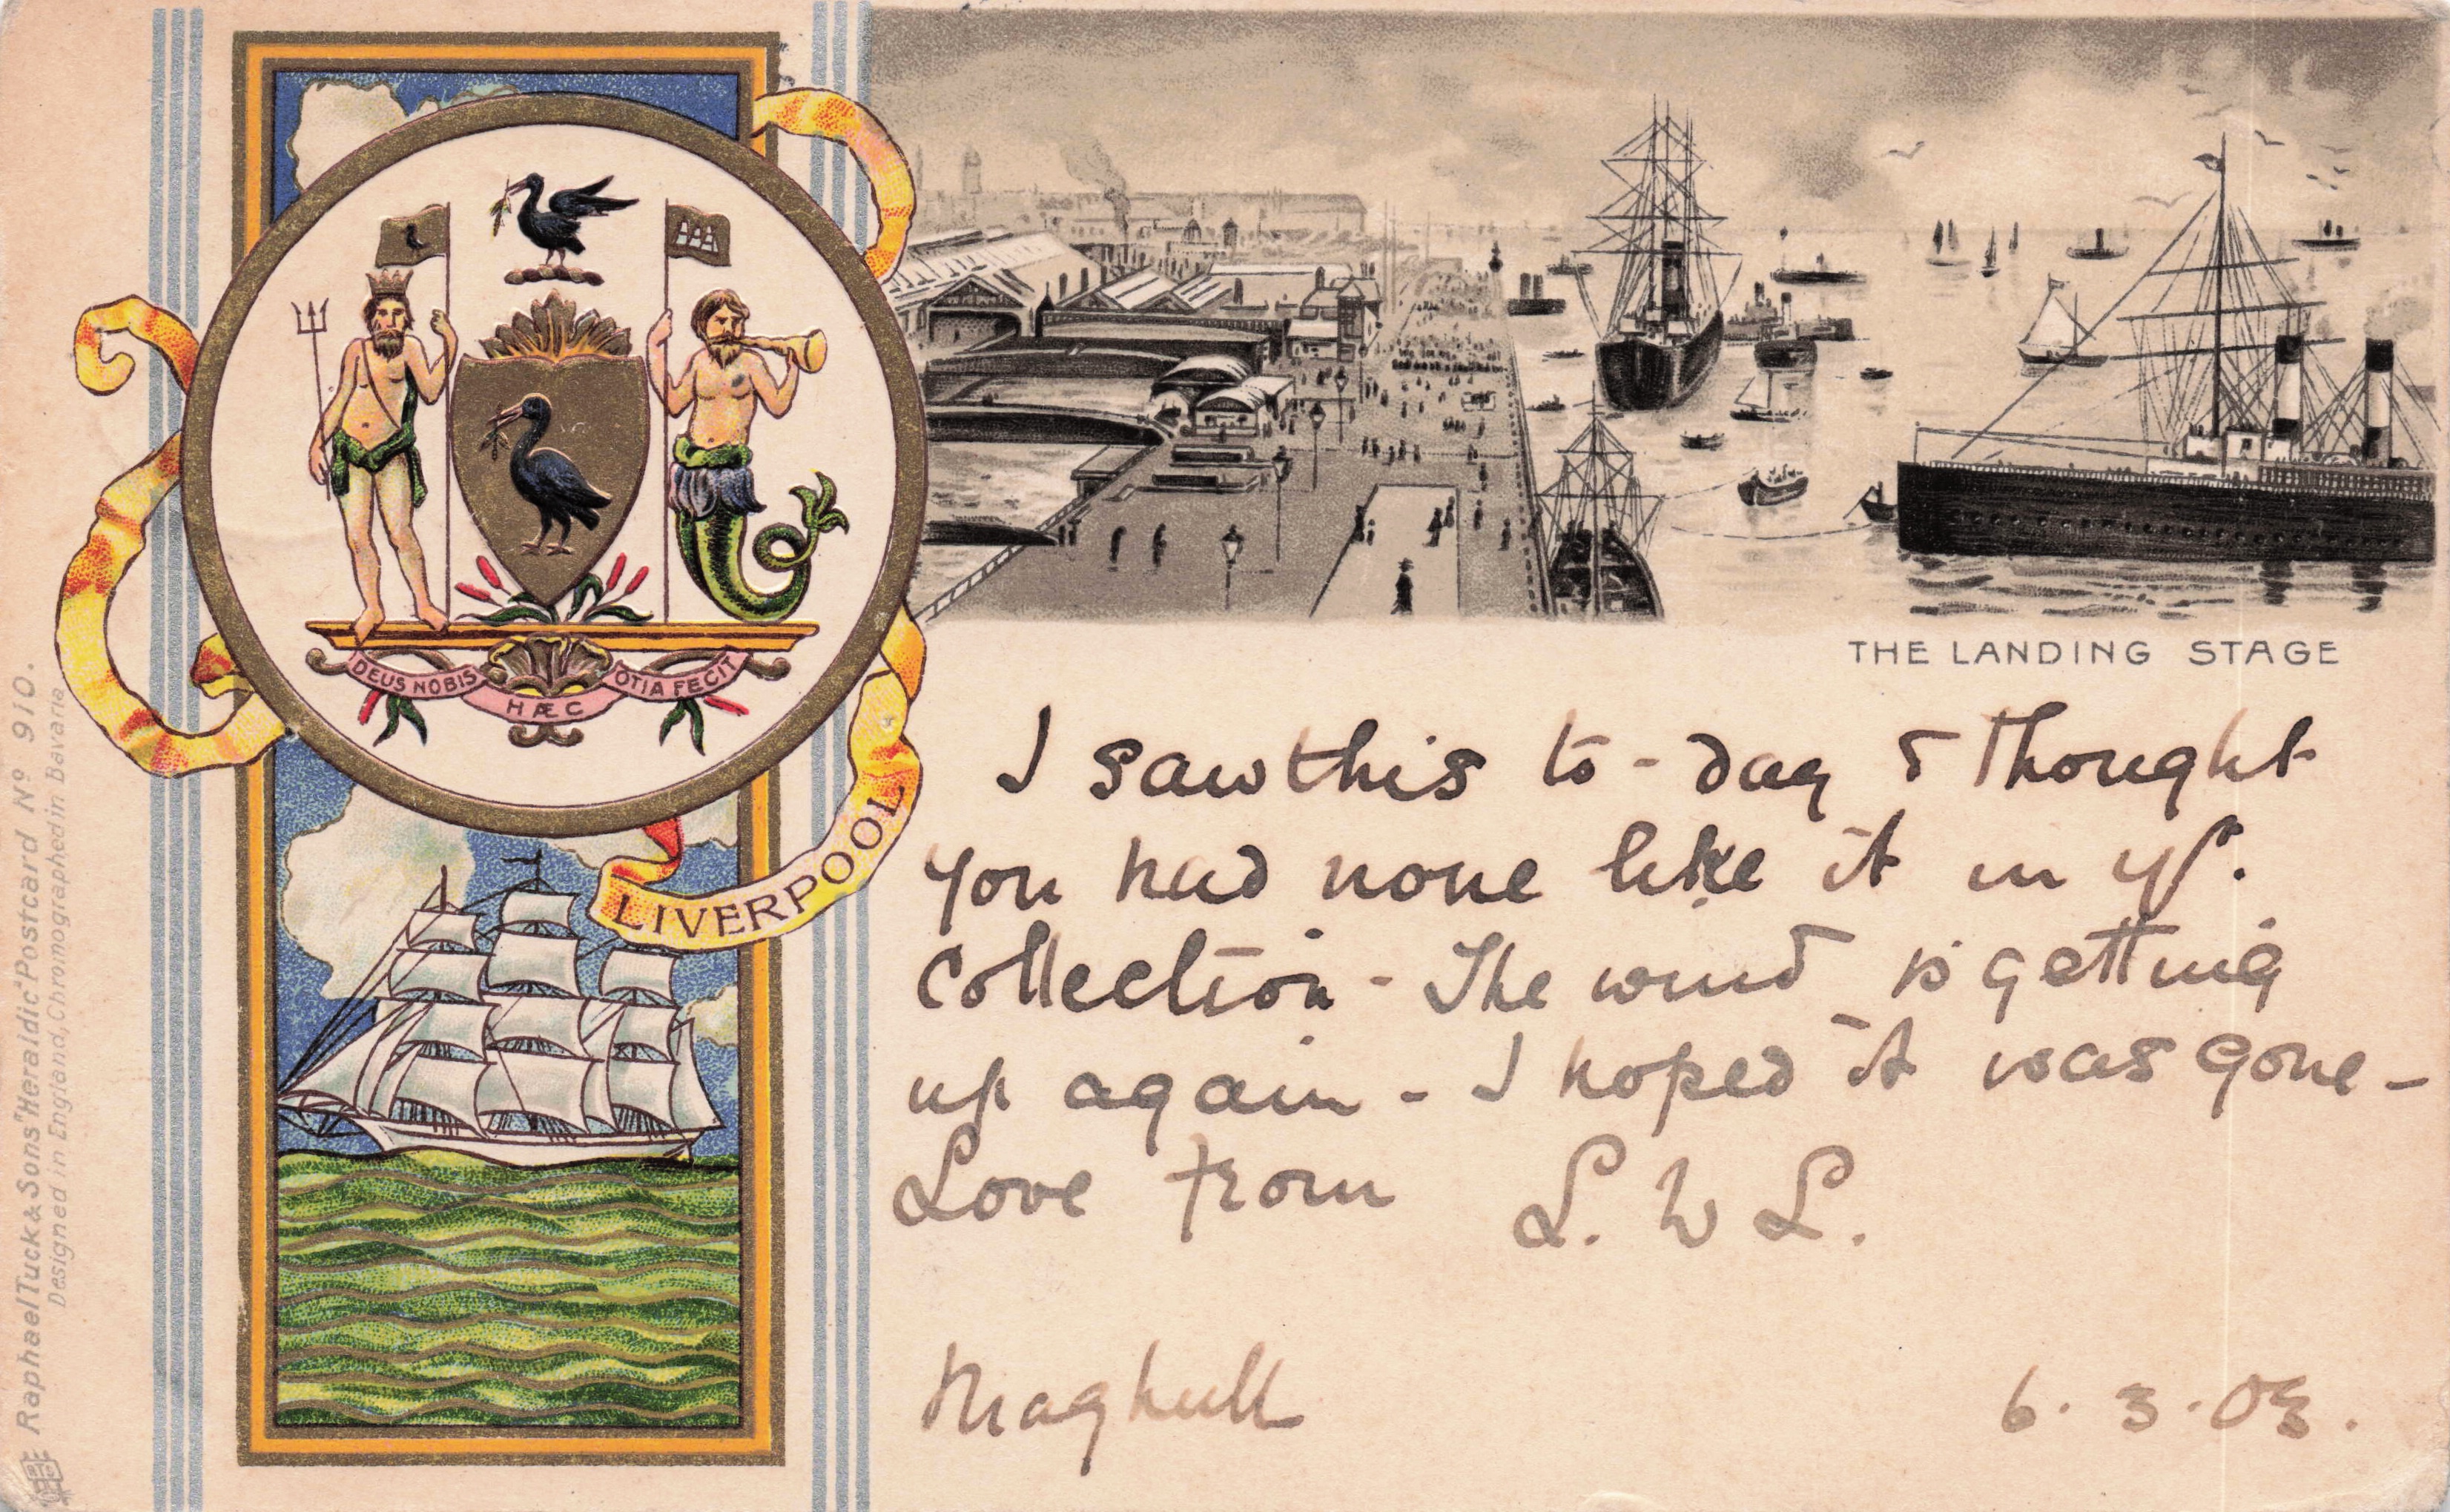 DEUS NOBIS HÆC OTIA FECIT
LIVERPOOL
Raphael Tuck & Sons' "Heraldic" Postcard Nº 910.
Designed in England, Chromographed in Bavaria
THE LANDING STAGE
I saw this to-day & thought
you had none like it in yr.
Collection - The wind is getting
up again - I hoped it was gone -
Love from L. W L.
Maghull
6. 3. 03.